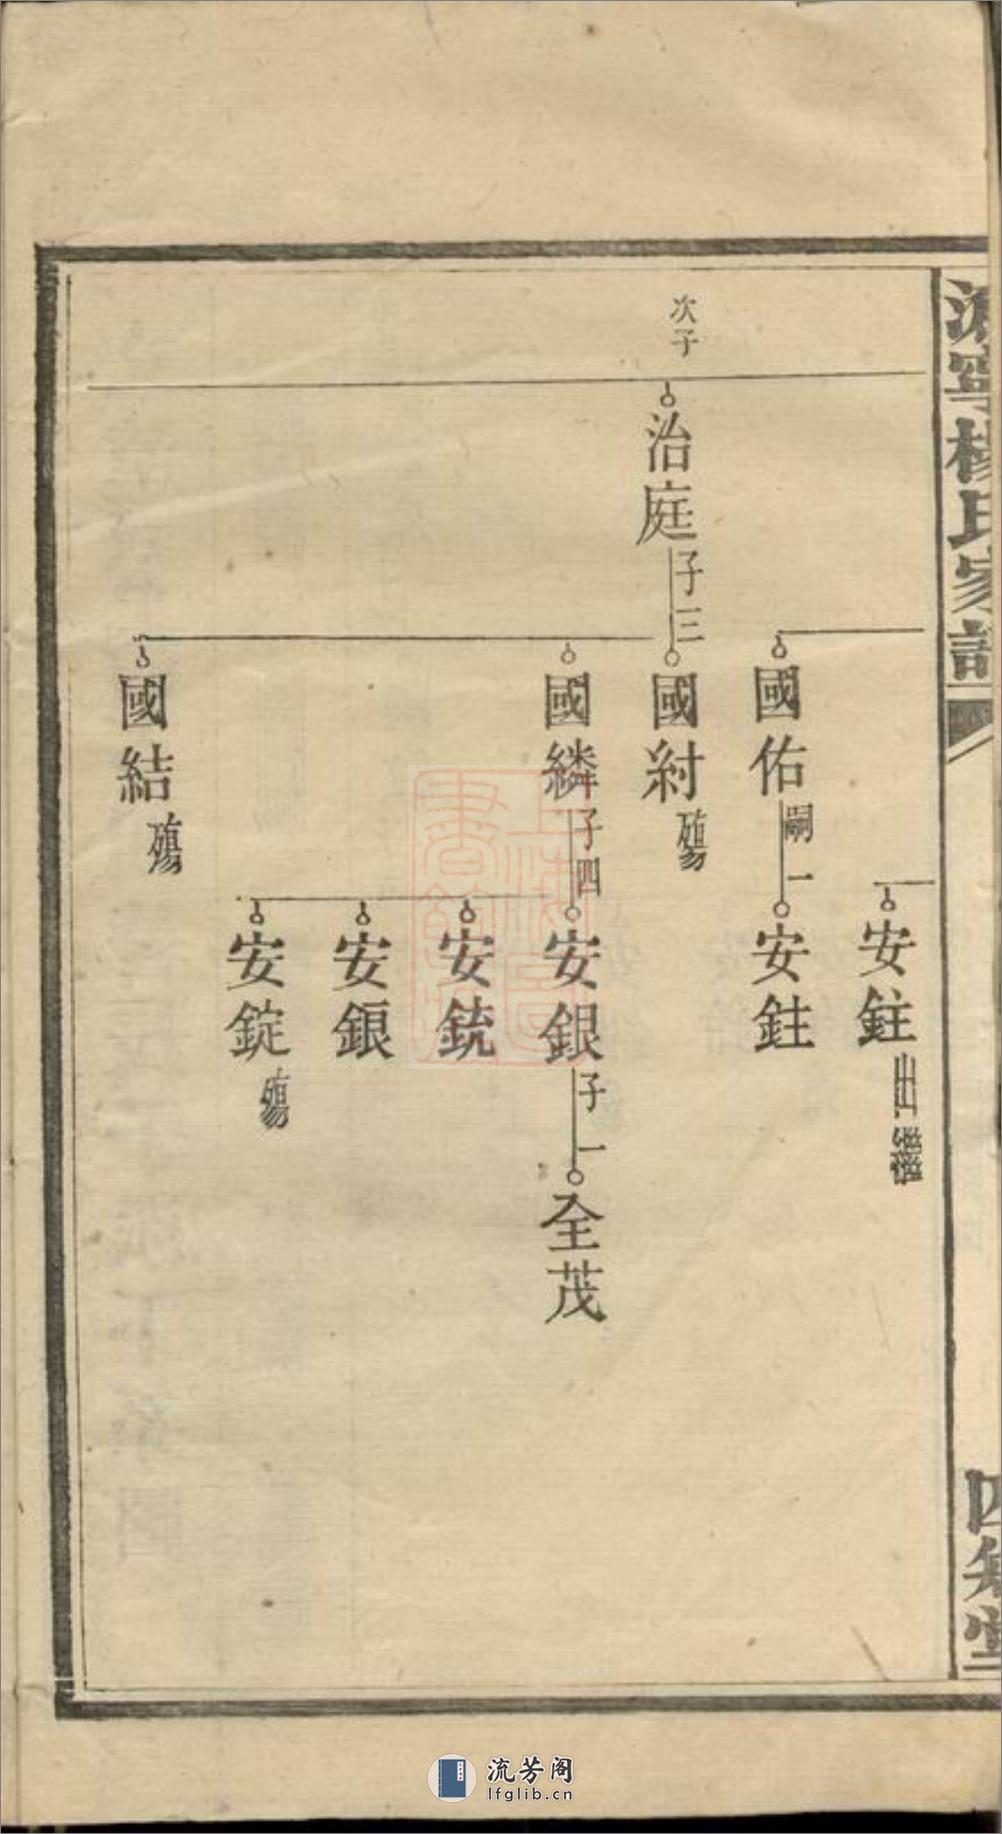 溈寧楊氏家譜
四知堂
安鉒出繼
國佑嗣一
安鉒
次子
治庭子三
國紂殤
國繗子四
安銀子一
全茂
安銃
安鋃
安錠殤
國結殤
上海圖書館藏
流芳阁
lfglib.cn